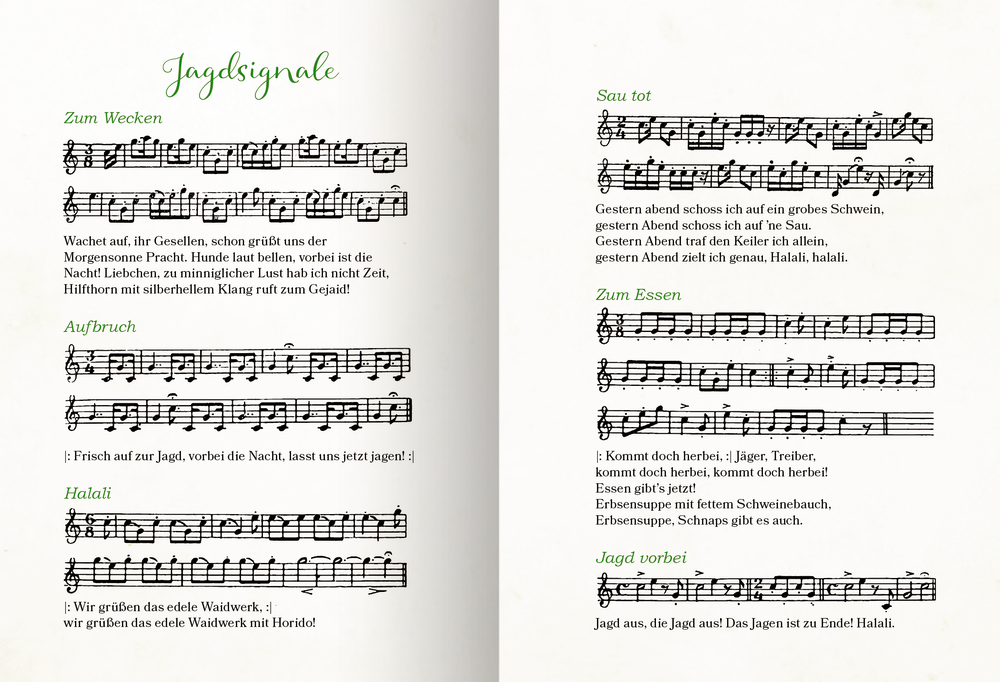 Jagdsignale
Zum Wecken
Wachet auf, ihr Gesellen, schon grüßt uns der
Morgensonne Pracht. Hunde laut bellen, vorbei ist die
Nacht! Liebchen, zu minniglicher Lust hab ich nicht Zeit,
Hilfthorn mit silberhellem Klang ruft zum Gejaid!
Aufbruch
|: Frisch auf zur Jagd, vorbei die Nacht, lasst uns jetzt jagen! :|
Halali
|: Wir grüßen das edele Waidwerk, :|
wir grüßen das edele Waidwerk mit Horido!
Sau tot
Gestern abend schoss ich auf ein grobes Schwein,
gestern Abend schoss ich auf 'ne Sau.
Gestern Abend traf den Keiler ich allein,
gestern Abend zielt ich genau, Halali, halali.
Zum Essen
|: Kommt doch herbei, :| Jäger, Treiber,
kommt doch herbei, kommt doch herbei!
Essen gibt's jetzt!
Erbsensuppe mit fettem Schweinebauch,
Erbsensuppe, Schnaps gibt es auch.
Jagd vorbei
Jagd aus, die Jagd aus! Das Jagen ist zu Ende! Halali.